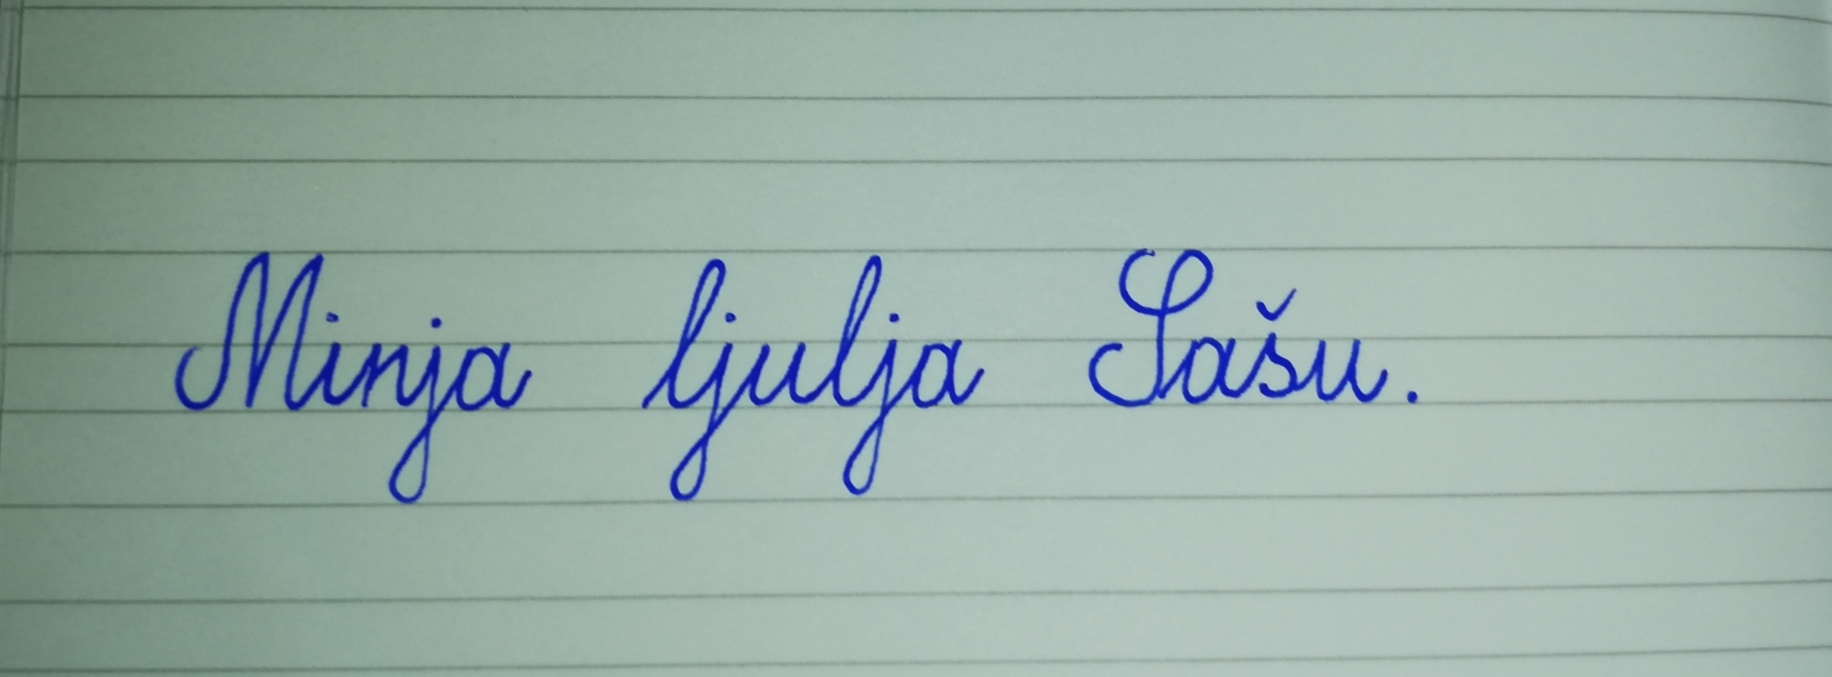 Minja ljulja Sašu.